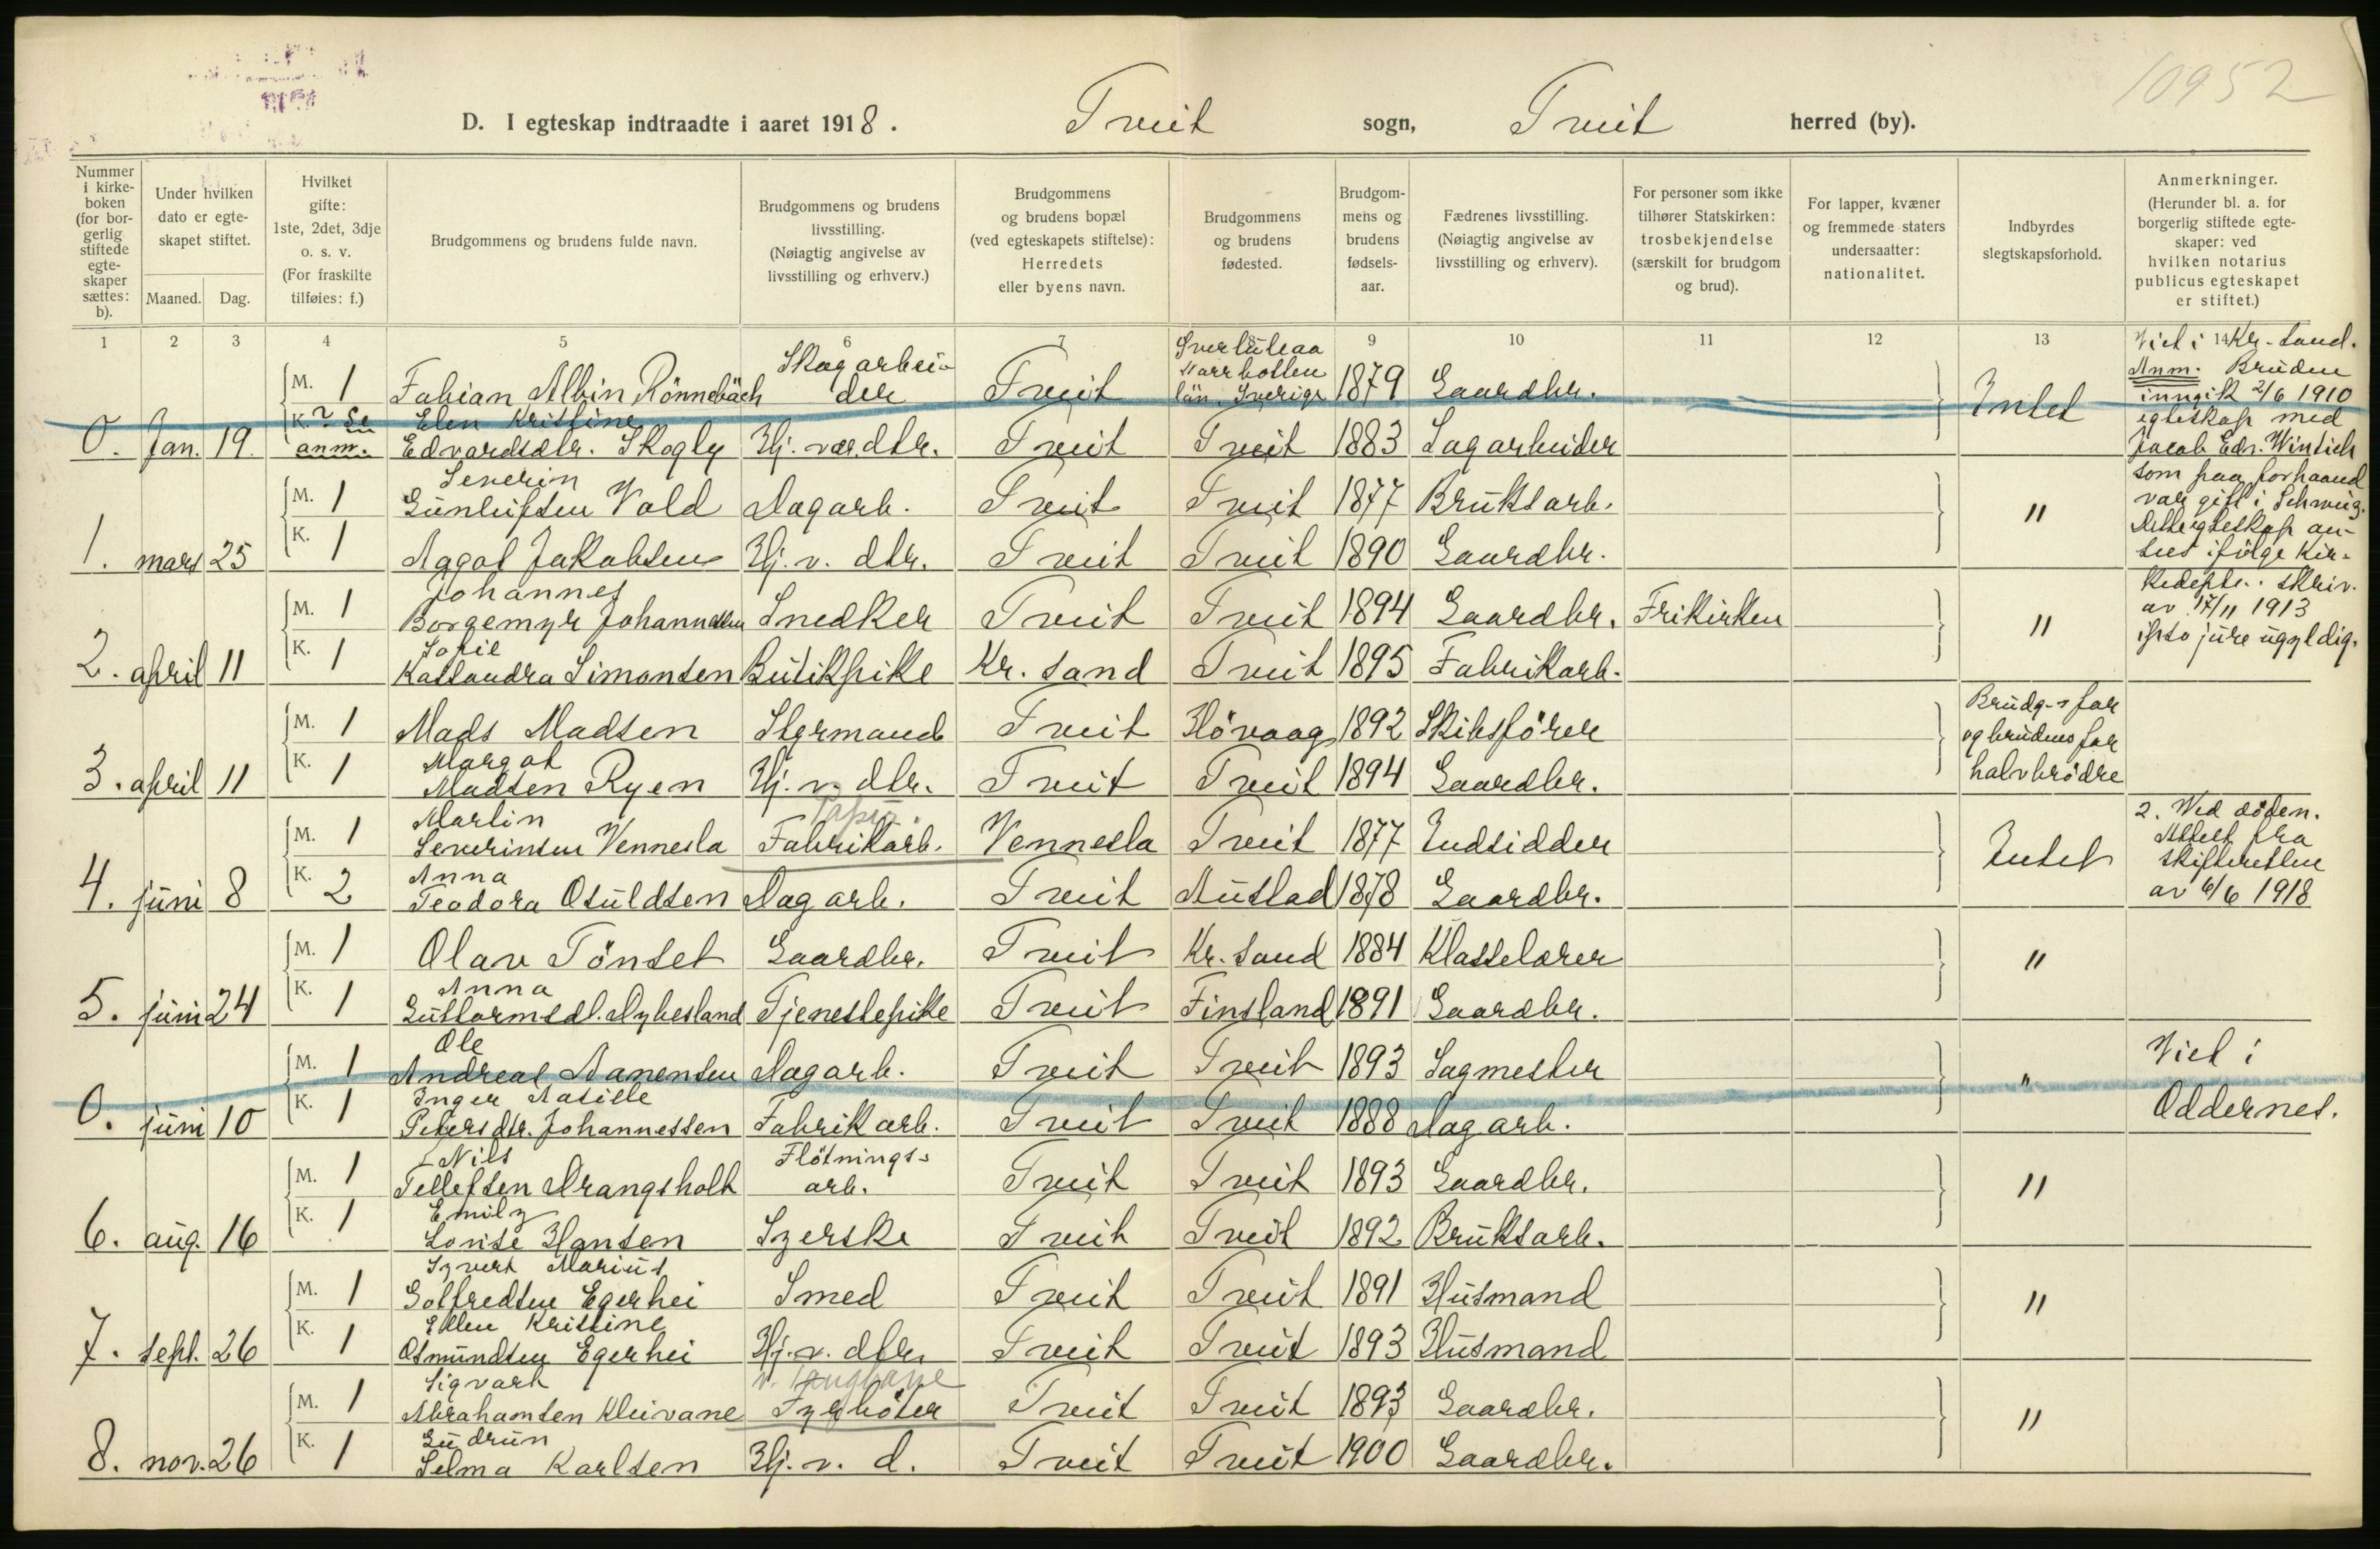 10952
D. I egteskap indtraadte i aaret 1918. Tveit sogn, Tveit herred (by).
Nummer i kirke-boken (for bor-gerlig stiftede egte-skaper sættes: b).
Under hvilken dato er egte-skapet stiftet.
Maaned. Dag.
Hvilket gifte: 1ste, 2det, 3dje o. s. v. (For fraskilte tilføies: f.)
Brudgommens og brudens fulde navn.
Brudgommens og brudens livsstilling. (Nøiagtig angivelse av livsstilling og erhverv.)
Brudgommens og brudens bopæl (ved egteskapets stiftelse): Herredets eller byens navn.
Brudgommens og brudens fødested.
Brudgom-mens og brudens fødsels-aar.
Fædrenes livsstilling. (Nøiagtig angivelse av livsstilling og erhverv).
For personer som ikke tilhører Statskirken: trosbekjendelse (særskilt for brudgom og brud).
For lapper, kvæner og fremmede staters undersaatter: nationalitet.
Indbyrdes slegtskapsforhold.
Anmerkninger. (Herunder bl. a. for borgerlig stiftede egte-skaper: ved hvilken notarius publicus egteskapet er stiftet.)
1 2 3 4 5 6 7 9 10 11 12 13 14
M. 1 Fabian Albin Rönnebäch Skogarbei-der Tveit Överluleaa Norrbotten län. Sverige 1879 Gaardbr. Intet
0. Jan. 19. K. ? Se anm. Elen Kristine Edvardsdtr. Skogly Hj. vær. dtr. Tveit Tveit 1883 Sagarbeider
Viet i Kr.-sand.
Anm. Bruden
inngik 2/6 1910
egteskap med
Jacob Edr. Wintsch
som paa forhaand
var gift i Schweiz.
Dette egteskap an-
sees ifölge Kir-
kedepte.. skriv.
av 17/11 1913
ipso jure ugyldig.
M. 1 Severin Gunleifsen Vold Dagarb. Tveit Tveit 1877 Bruksarb. "
1. mars 25 K. 1 Aagot Jakobsen Hj. v. dtr. Tveit Tveit 1890 Gaardbr.
M. 1 Johannes Borgemyr Johannessen Snedker Tveit Tveit 1894 Gaardbr. Frikirken "
2. april 11 K. 1 Sofie Kassandra Simonsen Butikpike Kr. sand Tveit 1895 Fabrikarb.
M. 1 Mads Madsen Styrmand Tveit Hövaag 1892 Skibsförer Brudg-s far og brudens far halvbrödre
3. april 11 K. 1 Margot Madsen Ryen Hj. v. dtr. Tveit Tveit 1894 Gaardbr.
M. 1 Martin Severinsen Vennesla Fabrikarb. Vennesla Tveit 1877 Indsidder Intet 2. Ved döden. Attest fra skifteretten av 6/6 1918
4. juni 8 K. 2 Anna Teodora Osuldsen Dagarb. Tveit Austad 1878 Gaardbr.
M. 1 Olav Tönset Gaardbr. Tveit Kr. sand 1884 Klasselærer "
5. juni 24 K. 1 Anna Guttormsdt. Dybesland Tjenestepike Tveit Finsland 1891 Gaardbr.
M. 1 Ole Andreas Aanensen Dagarb. Tveit Tveit 1893 Sagmester " Viet i Oddernes.
0. juni 10 K. 1 Inger Aasille Petersdtr. Johannessen Fabrikarb. Tveit Tveit 1888 Dagarb.
M. 1 Nils Tellefsen Drangsholt Flötnings-arb. Tveit Tveit 1893 Gaardbr. "
6. aug. 16 K. 1 Emily Lovise Hansen Syerske Tveit Tveit 1892 Bruksarb.
M. 1 Syvert Marius Golfredsen Egerhei Smed Tveit Tveit 1891 Husmand "
7. sept. 26 K. 1 Ellen Kristine Osmundsen Egerhei Hj. v. dtr. Tveit Tveit 1893 Husmand
M. 1 Sigvart Abrahamsen Kleivane Fyrböter Tveit Tveit 1893 Gaardbr. "
8. nov. 26 K. 1 Gudrun Selma Karlsen Hj. v. d. Tveit Tveit 1900 Gaardbr.